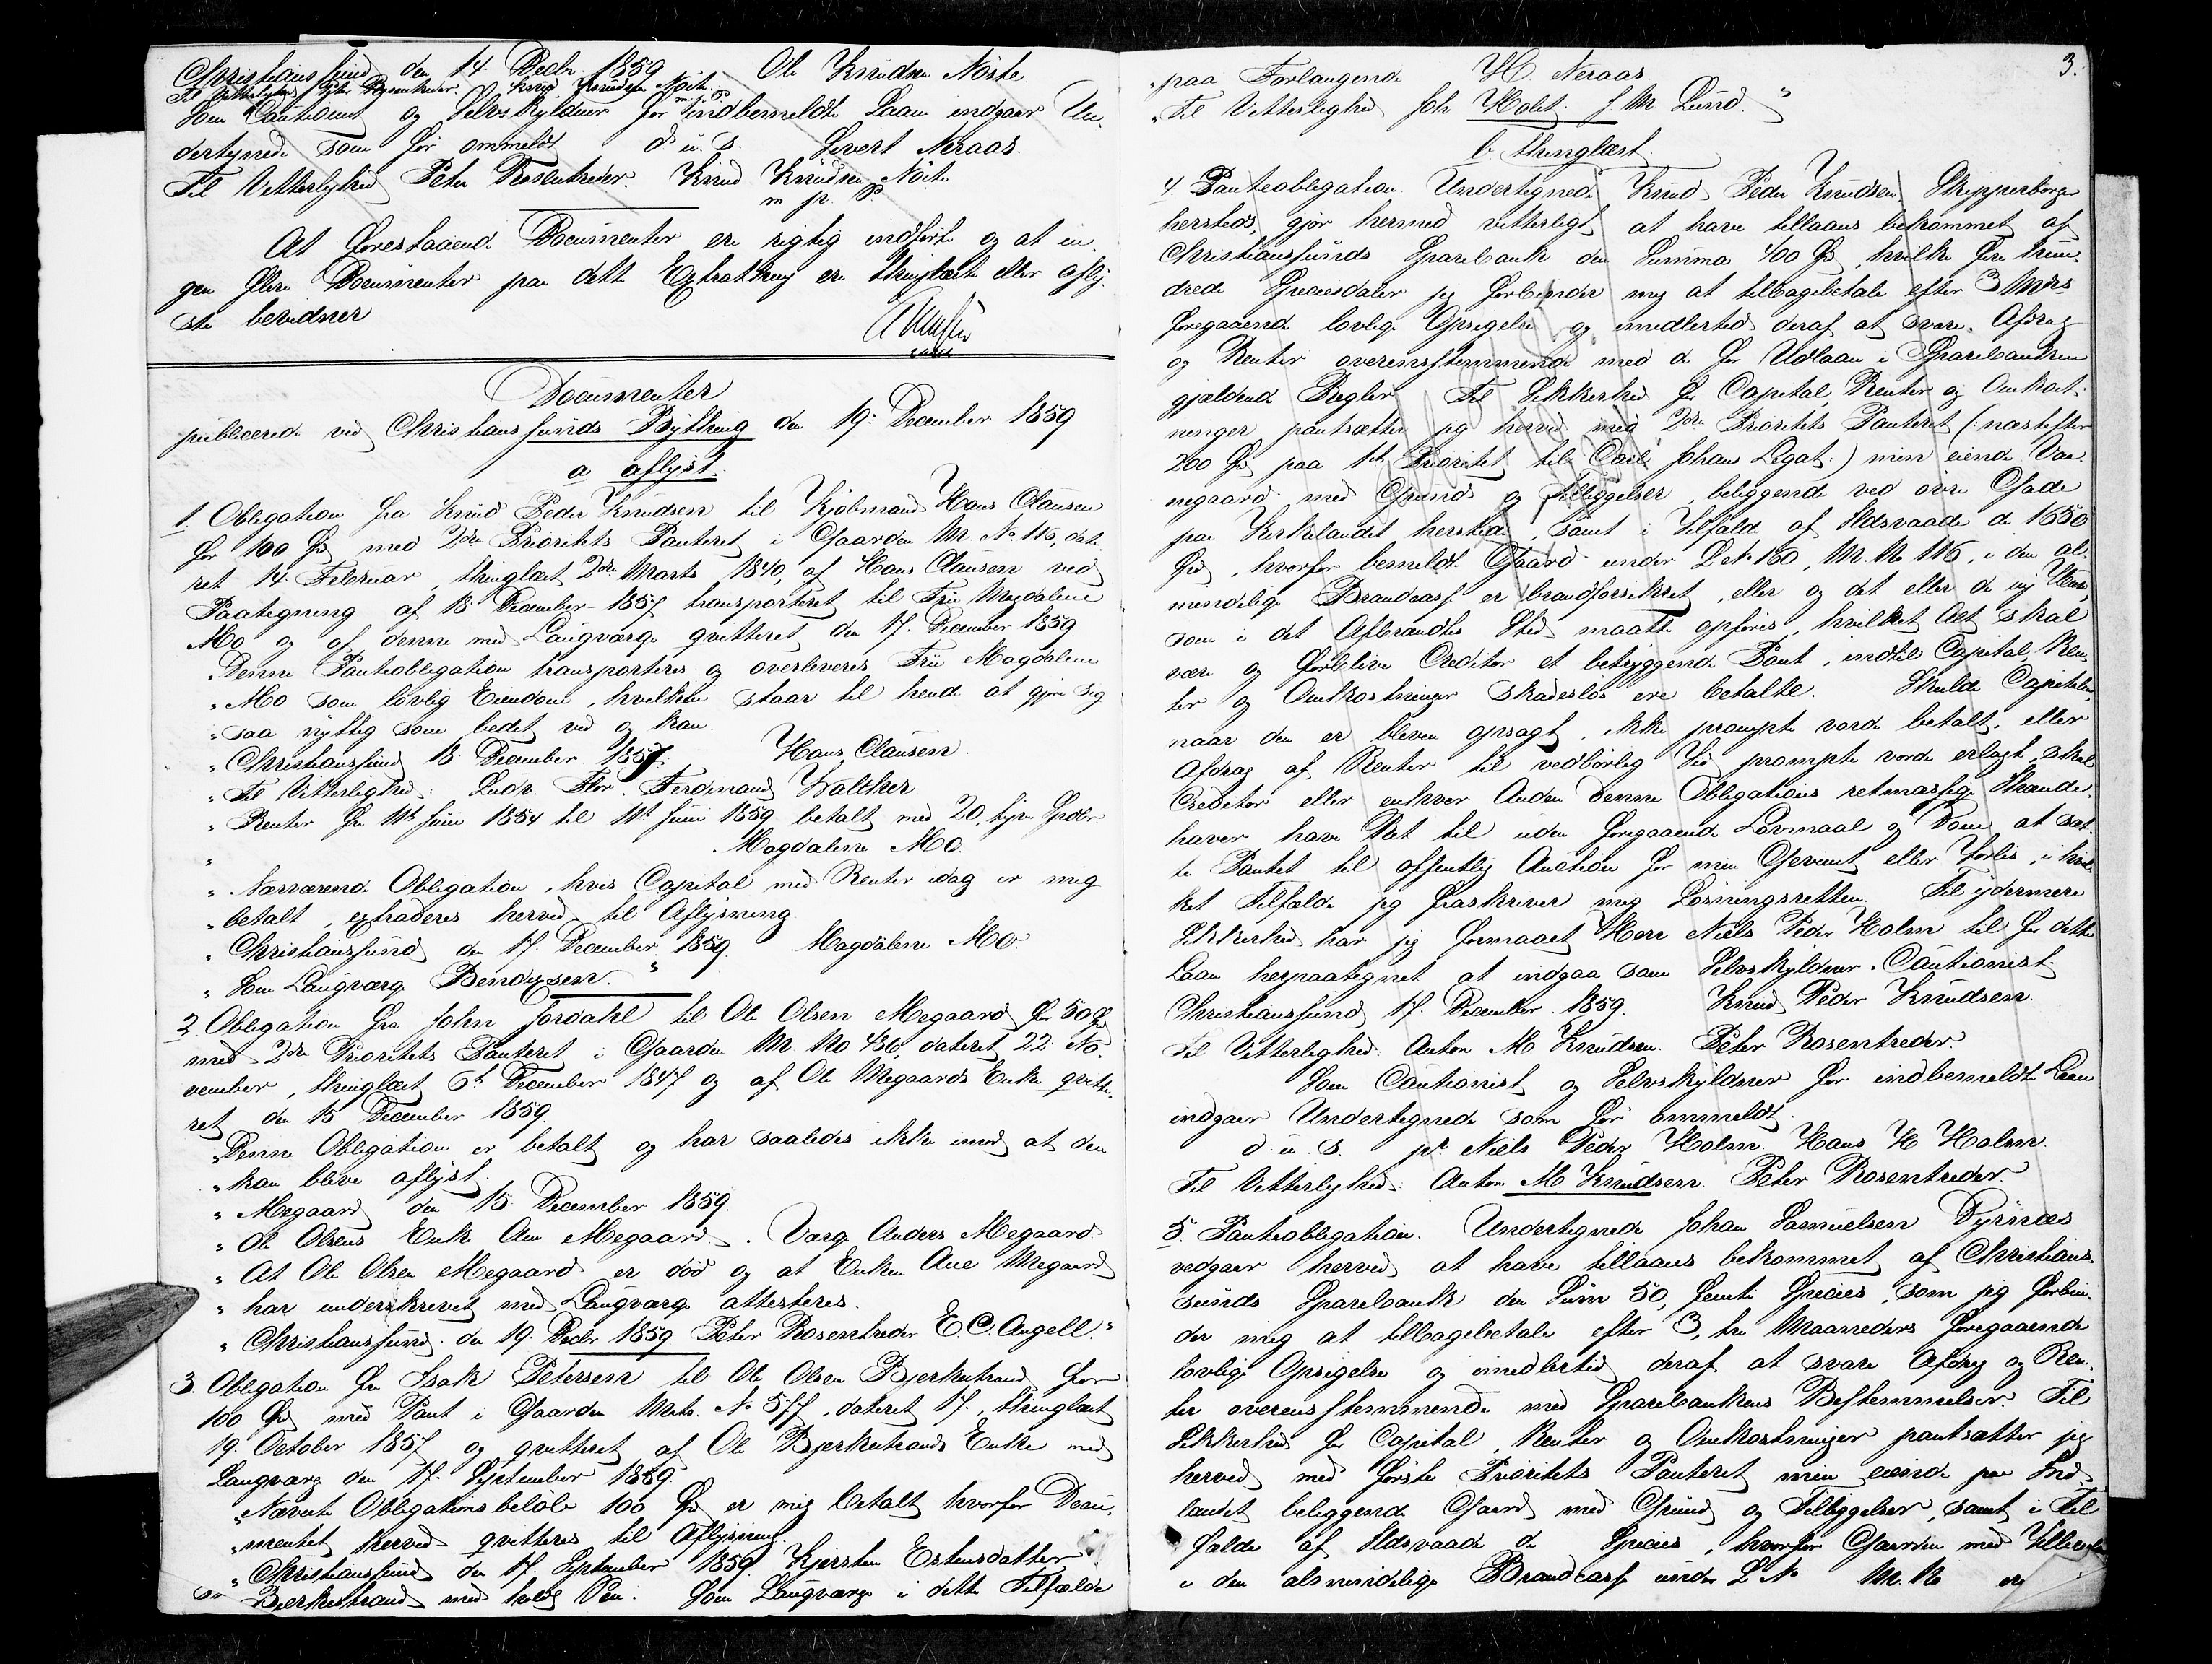 Christiansund den 14. Decbr 1859 Ole Knudsen Nöste
Til Vitterlighed Peter Rosentreder. Knud Knudsen Nöste
m. p. P.
Som Cautionist og Selvskyldner for indbemeldte Laan indgaar Un-
dertegnede som før ommeldt d. u. s. Sivert Neraas.
Til Vitterlighed Peter Rosentreder. Knud Knudsen Nöste
m. p. P.
At forestaaende Documenter ere rigtig indførte og at in-
gen flere Documenter paa dette Extrathing ere thinglæste eller afly-
ste bevidner
Documenter
publicerede ved Christianssunds Bything den 19: December 1859
a aflyst.
1. Obligation fra Knud Peder Knudsen til Kjöbmand Hans Clausen
for 100 Spd med 2den Prioritets Panteret i Gaarden M. No 116, date-
ret 14. Februar, thinglæst 2den Marts 1840, af Hans Clausen ved
Paategning af 18 December 1857 transporteret til Fru Magdalene
Mo og af denne med Laugværge qvitteret den 17. December 1859
"Denne Panteobligation transporteres og overleveres Fru Magdalene
"Mo som lovlig Eiendom, hvilken staar til hende at gjøre sig
"saa nyttig som bedst ved og kan.
"Christianssund 18 December 1857. Hans Clausen.
"Til Vitterlighed: Ludv. Flor. Ferdinand Walcker
"Renter fra 11te Juni 1854 til 11te Juni 1859 betalt med 20, tyve Spdlr
" Magdalene Mo.
"Nærværende Obligation, hvis Capital med Renter idag er mig
"betalt, extraderes herved til Aflysning.
"Christianssund den 17. December 1859. Magdalene Mo.
"Som Laugværge Bendixsen."
2. Obligation fra John Jordahl til Ole Olsen Megaard for 50 Spd
med 2den Prioritets Panteret i Gaarden M No 436, dateret 22 No-
vember, thinglæst 6te December 1847 og af Ole Megaards Enke qvitte-
ret den 15 December 1859.
"Denne Obligation er betalt og har saaledes ikke imod at den
"kan blive aflyst.
"Megaard den 15 December 1859.
"Ole Olsens Enke Ane Megaard. Værge Anders Megaard.
"At Ole Olsen Megaard er død og at Enken Ane Megaard
"har underskrevet med Laugværge attesteres.
"Christianssund. den 19. Decbr 1859 Peter Rosentreder E. C. Angell."
3. Obligation fra Isak Petersen til Ole Olsen Bjerkestrand for
100 Spd med Pant i Gaarden Matr. No 577, dateret 17., thinglæst
19. October 1857 og qvitteret af Ole Bjerkestrands Enke med
Laugværg den 17. September 1859.
"Nævnte Obligationsbeløb 100 Spd er mig betalt hvorfor Docu-
"mentet herved qvitteres til Aflysning.
"Christianssund den 17. September 1859. Kjersten Estensdatter
Bjerkestrand med holdt Pen. Som Laugværge i dette Tilfælde
3.
"paa Forlangende H. Neraas
"Til Vitterlighed Joh Holst. J M Lund."
b. thinglæst.
4. Panteobligation. Undertegnede Knud Peder Knudsen, Skipperborger
hersteds, gjør hermed vitterligt at have tillaans bekommet af
Christianssunds Sparebank den Summa 400 Spd, hvilke fire hun-
drede Speciesdaler jeg forbinder mig at tilbagebetale efter 3 Mdrs
foregaaende lovlig Opsigelse og imedlertid deraf at svare Afdrag
og Renter overensstemmende med de for Udlaan i Sparebanken
gjældende Regler. Til Sikkerhed for Capital, Renter og Omkost-
ninger pantsætter jeg herved med 2den Prioritets Panteret (: næstefter
200 Spd paa 1ste Prioritet til Carl Johans Legat :) min eiende Vaa-
negaard med Grund og Tilliggelser, beliggende ved øvre Gade
paa Kirkelandet hersteds, samt i Tilfælde af Ildsvaade de 1550
Spd, hvorfor bemeldte Gaard under L. No 160, M. No 116, i den al-
mindelige Brandcasse er brandforsikkret, eller og det eller de ny Huse,
som i det Afbrændtes Sted maatte opføres, hvilket Alt skal
være og forblive Creditor et betryggende Pant, indtil Capital, Ren-
ter og Omkostninger skadesløs ere betalte. Skulde Capitalen,
naar den er bleven opsagt, ikke prompte vorde betalt, eller
Afdrag af Renter til vedbørlig Tid prompte vorde erlagt, skal
Creditor eller enhver Anden denne Obligations retmæssige Ihænde-
haver have Ret til uden foregaaende Lovmaal og Dom at sæt-
te Pantet til offentlig Auction for min Gevinst eller Forlis, i hvil-
ket Tilfælde jeg fraskriver mig Løsningsretten. Til ydermere
Sikkerhed har jeg formaaet Herr Niels Peder Holm til for dette
Laan herpaategnet at indgaa som Selvskyldner-Cautionist.
Christianssund 17. December 1859. Knud Peder Knudsen.
Til Vitterlighed: Anton M Knudsen. Peter Rosentreder.
Som Cautionist og Selvskyldner for indbemeldte Laan
indgaar Undertegnede som før ommeldt.
d. u. s. pr Niels Peder Holm. Hans H Holm.
Til Vitterlighed: Anton M Knudsen. Peter Rosentreder.
5. Panteobligation. Undertegnede Johan Samuelsen Dyrnæs
vedgaar herved at have tillaans bekommet af Christians-
sunds Sparebank den Sum 50, femti Species, som jeg forbin-
der mig at tilbagebetale efter 3, tre Maaneders foregaaende
lovlig Opsigelse og imedlertid deraf at svare Afdrag og Ren-
ter overensstemmende med Sparebankens Bestemmelser. Til
Sikkerhed for Capital, Renter og Omkostninger pantsætter jeg
herved med første Prioritets Panteret min eiende paa Ind-
landet beliggende Gaard med Grund og Tilliggelser, samt i Til
fælde af Ildsvaade de Species, hvorfor Gaarden med
i den almindelige Brandcasse under L No M. No er